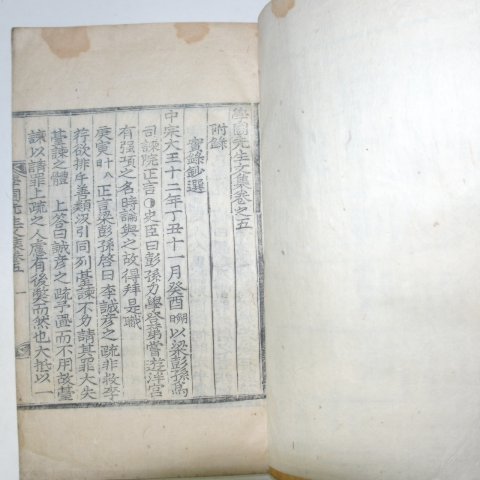 學圃先生文集卷之五
附錄
實錄鈔選
中宗大王十二年丁丑十一月癸酉朔以梁彭孫爲
司諫院正言史臣曰彭孫力學登第嘗遊泮宮
有强項之名時論與之故得拜是職
庚寅十八日正言梁彭孫啓曰李誠彦之疏非救李
耔欲排斥善類汲引同列臺諫不勿請其罪大失
臺諫之體 上答曰誠彦之疏予置而不用故臺
諫以請罪上疏之人慮有後弊而然也大抵以一
學圃先生文集卷五 一